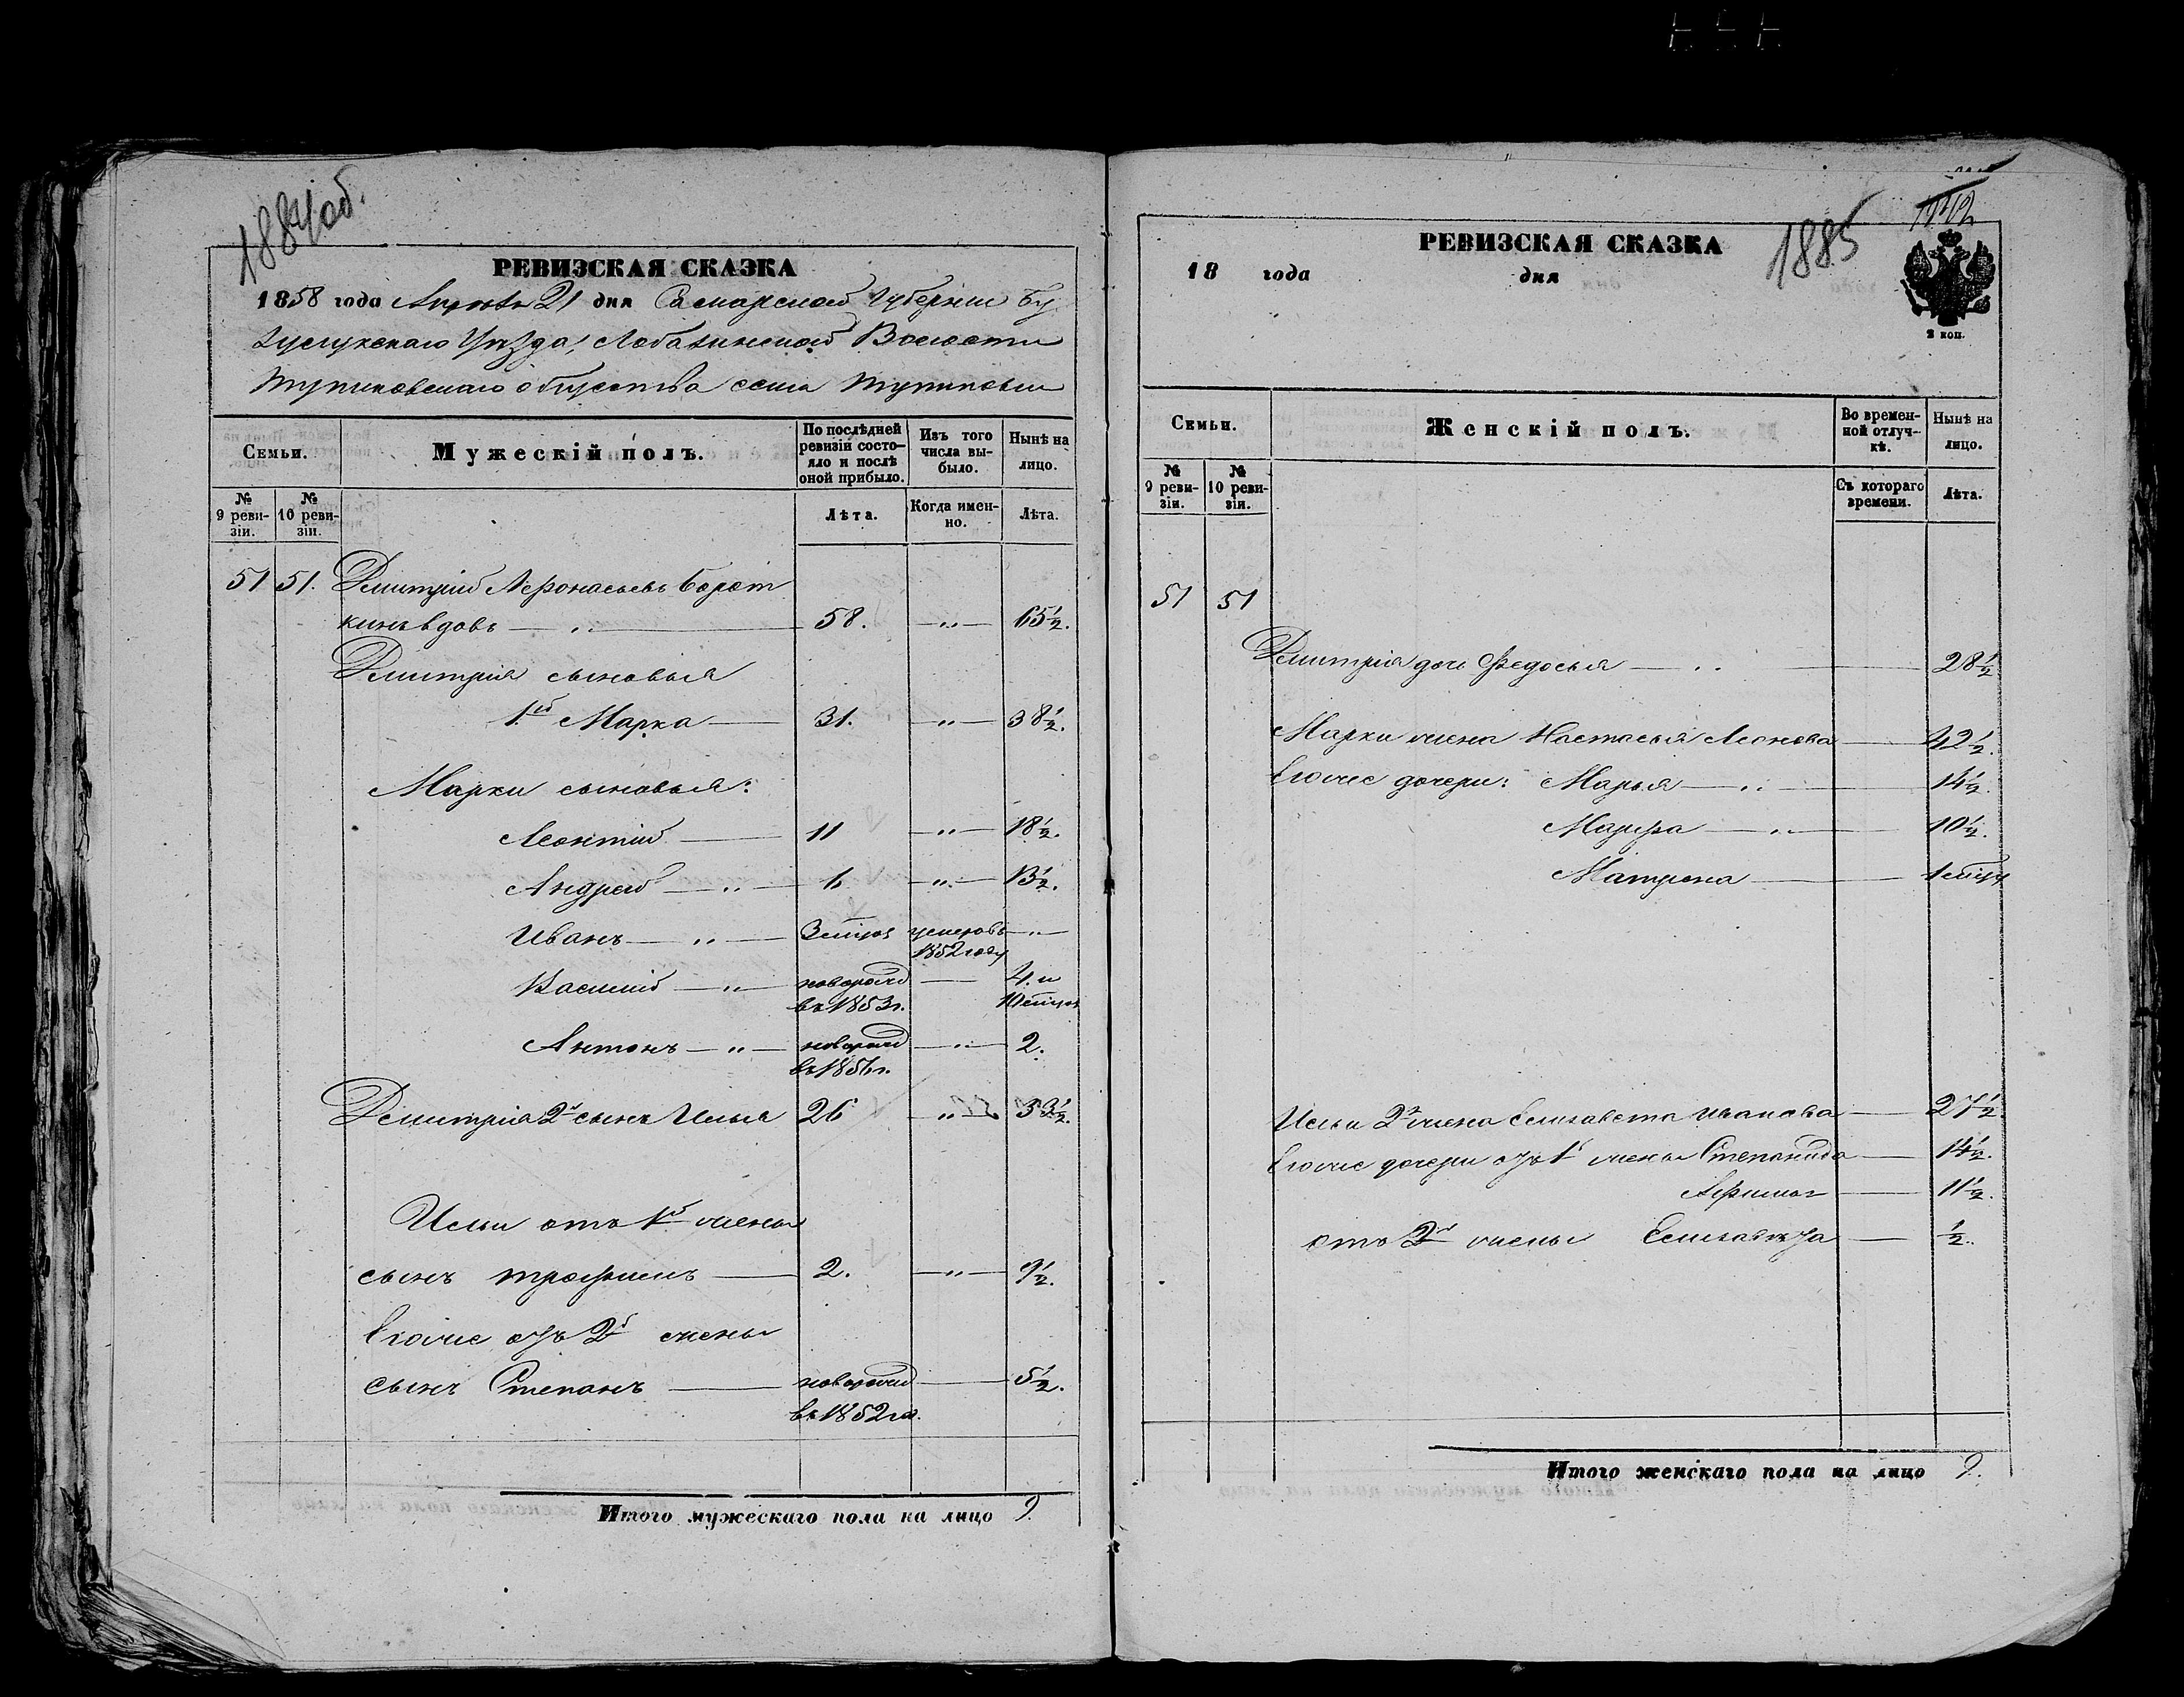 1884об.
РЕВИЗСКАЯ СКАЗКА
1858 года Апреля 21 дня Самарской Губернии Бу
гурусланского Уѣзда, Волости
общества села
Семьи.
Мужескій полъ.
По послѣдней ревизіи состо-
яло и послѣ оной прибыло.
Изъ того числа вы-
было.
Нынѣ на лицо.
№ 9 реви-
зіи.
№ 10 реви-
зіи.
Лѣта.
Когда имен-
но.
Лѣта.
51 51. Дмитрій Афонасьевъ
кинъ вдовъ — „ — 58. — „ — 65½.
Дмитрія сыновья
1й Марка — 31. — „ — 38½.
Марки сыновья:
Леонтій — 11 — „ — 18½.
Андрей — „ — 6 — „ — 13½.
Иванъ — „ — 3 умеръ въ — „ —
1852 году
Василій — „ — новорожд — 4. и
въ 1853г. 10
Антонъ — „ — новорожд — „ — 2.
въ 1856г.
Дмитрія 2й сынъ Илья 26 — „ — 33½.
Ильи отъ 1й жены
сынъ Трофимъ — 2. — „ — 9½.
Егоже отъ 2й жены
сынъ Степанъ — новорожд — 5½.
въ 1852 го.
Итого мужескаго пола на лицо 9.
1885
РЕВИЗСКАЯ СКАЗКА
18 года дня
2 коп.
Семьи.
Женскій полъ.
Во времен-
ной отлуч-
кѣ.
Нынѣ на лицо.
№ 9 реви-
зіи.
№ 10 реви-
зіи.
Съ котораго времени.
Лѣта.
51 51
Дмитрія дочь Федосья — „ — 28½
Марки жена Настасья Леонова — 42½.
Егоже дочери: Марья — „ — 14½.
Мавра — „ — 10½.
Матрена — 1
Ильи 2я жена Елизавета Иванова — 27½.
Егоже дочери отъ 1й жены Степанида — 14½.
Афимья — 11½.
отъ 2й жены Елизавета — ½.
Итого женскаго пола на лицо 9.